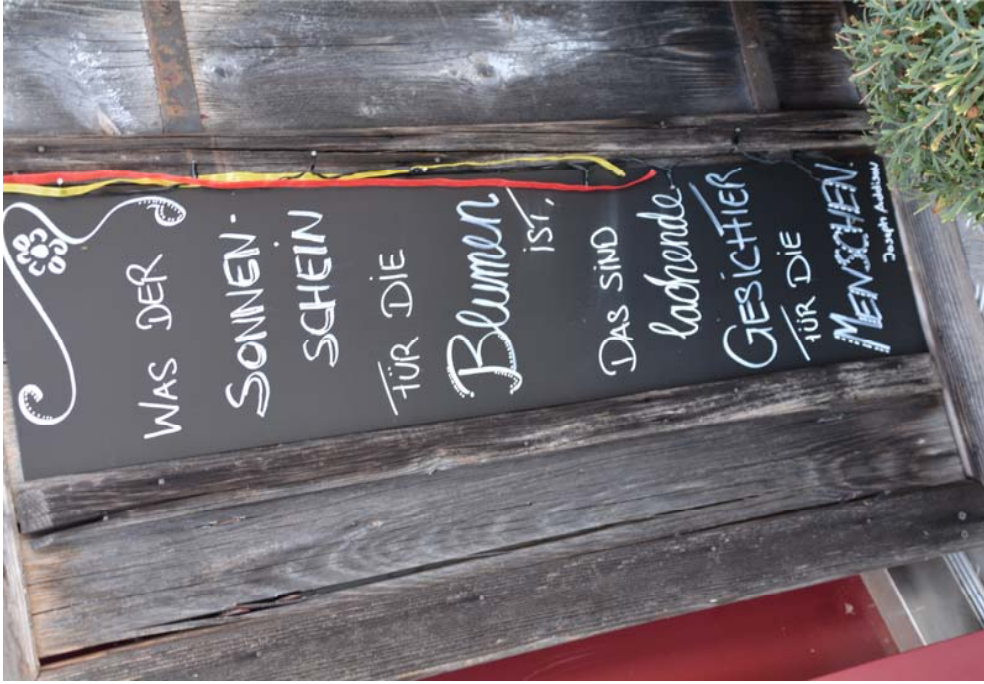 WAS DER
SONNEN-
SCHEIN
FÜR DIE
Blumen
IST,
DAS SIND
lachende
GESICHTER
FÜR DIE
MENSCHEN.
Joseph Addison